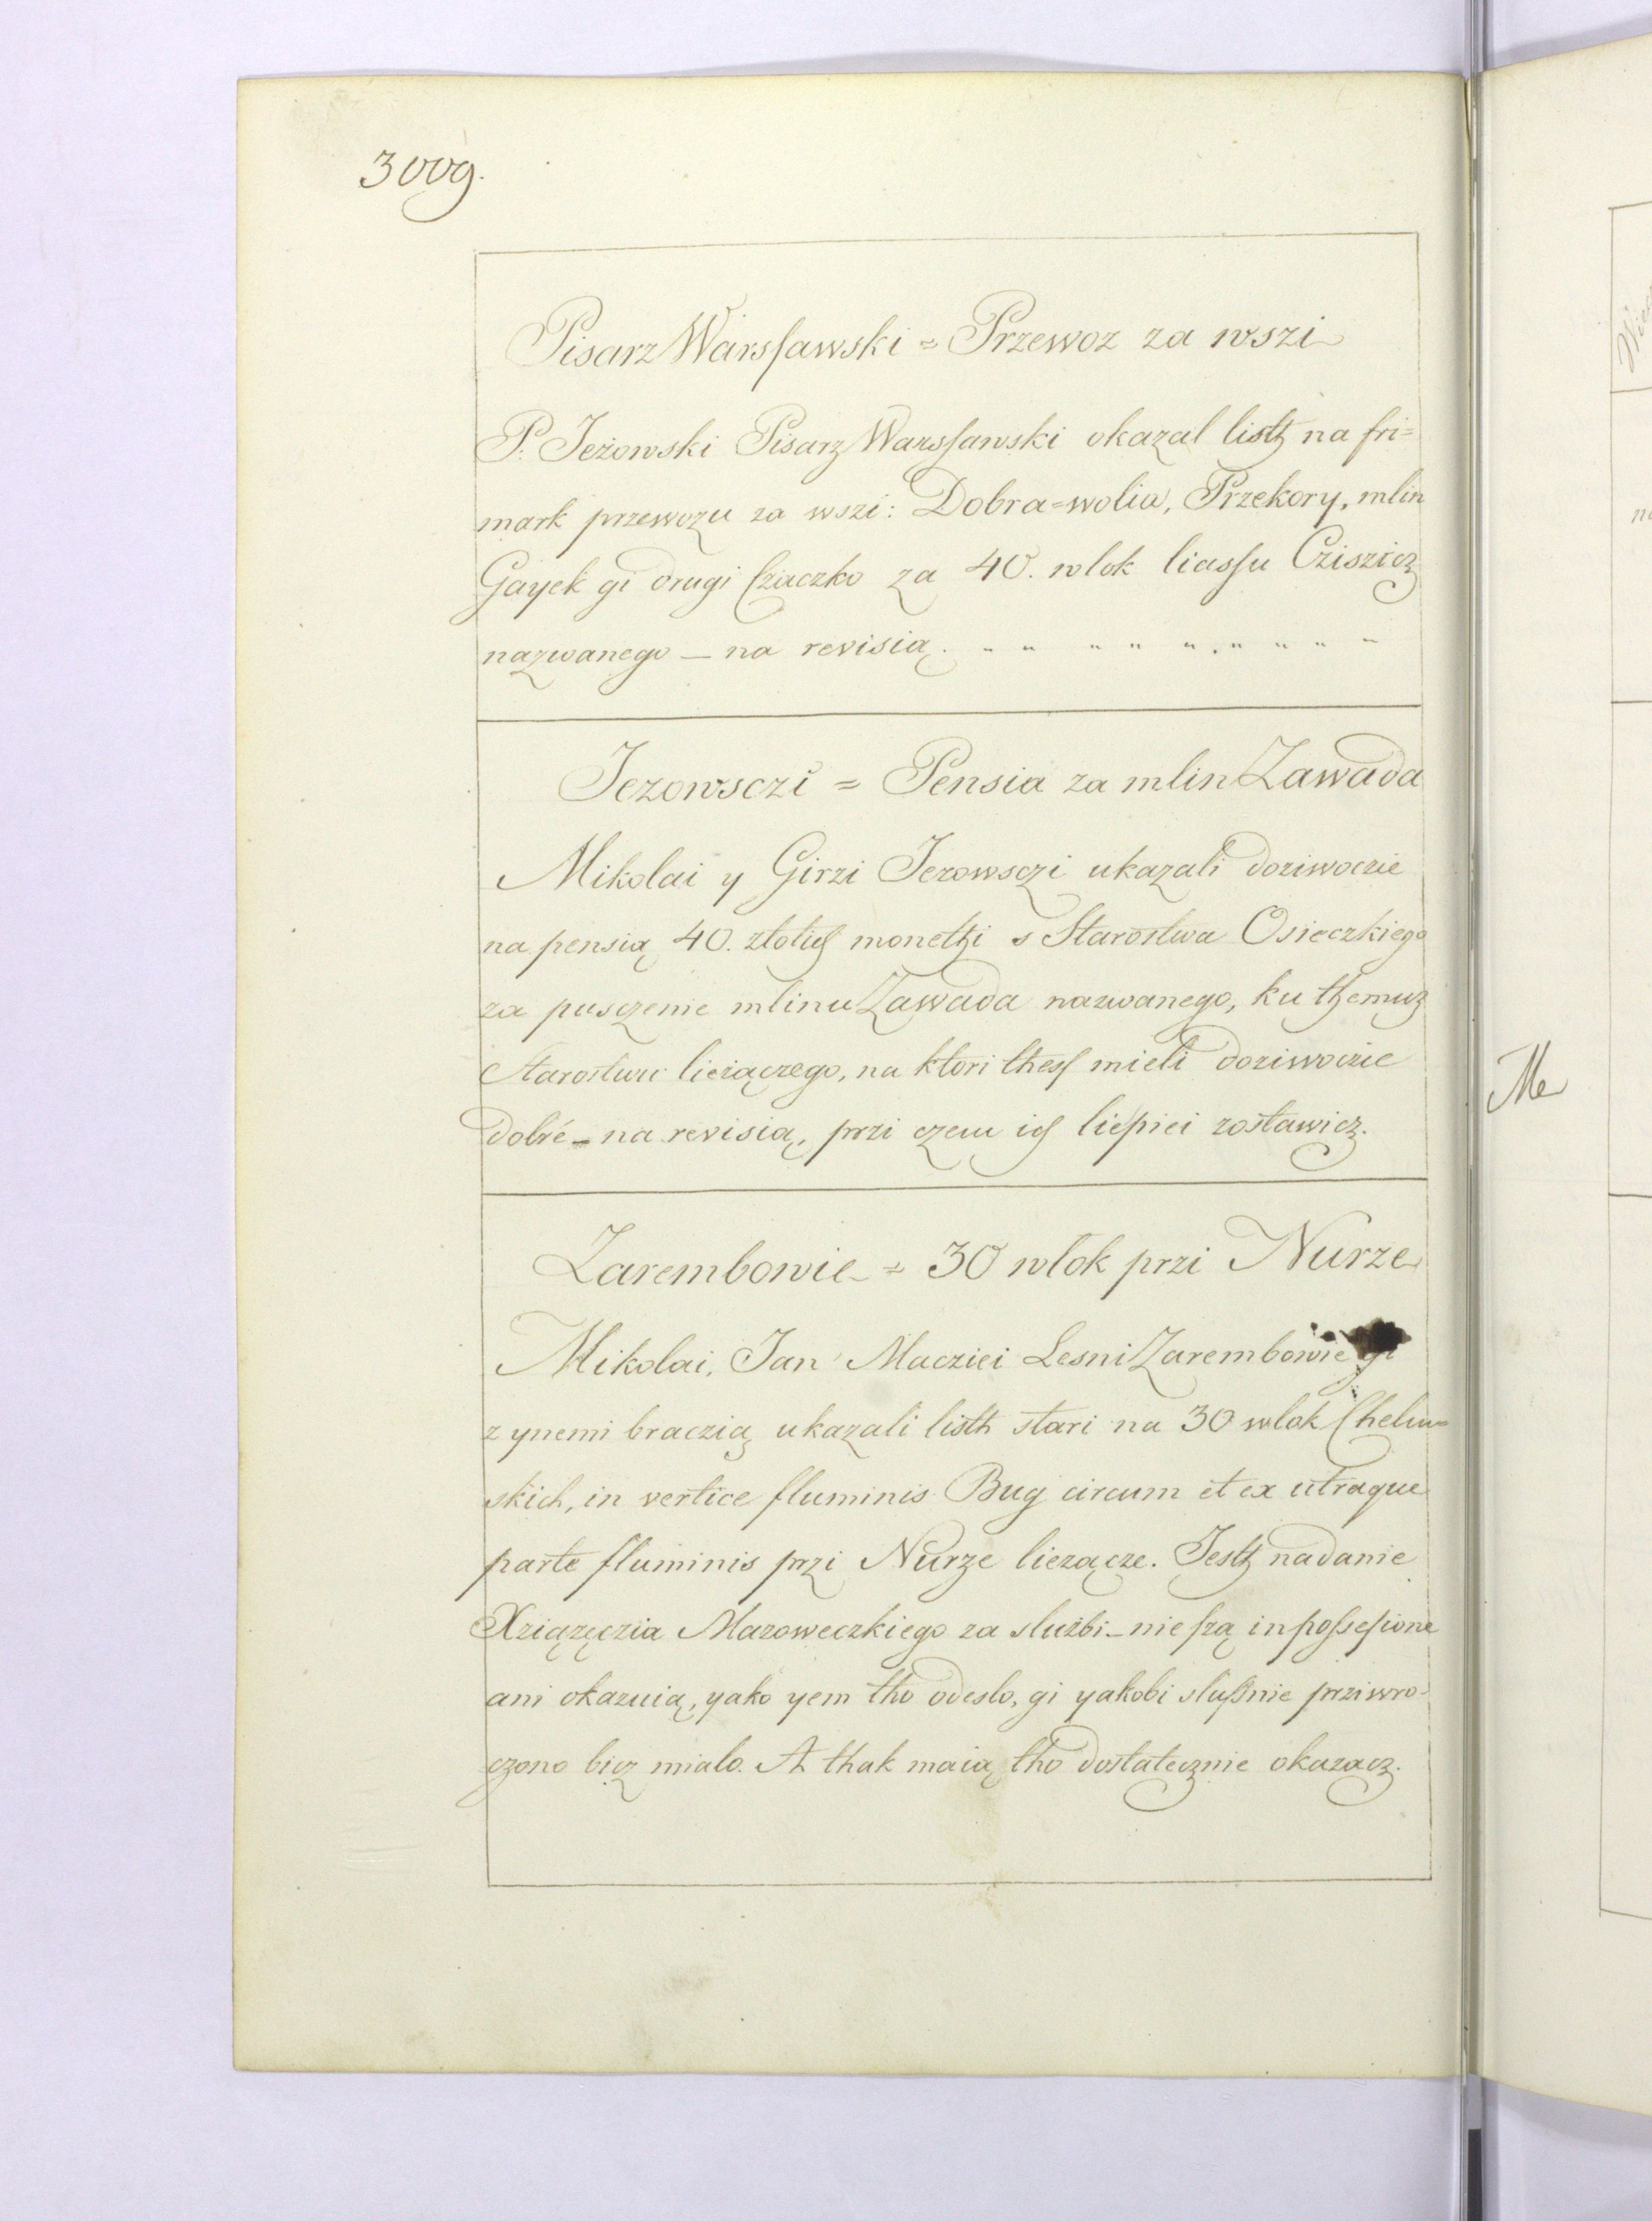 3009.
Pisarz Warsſawski = Przewoz za wszi
P. Jeżowski Pisarz Warsſawski okazal listh na fri=
mark przewozu za wszi: Dobra=wolia, Przekory, mlin
Gayek gi drugi Cziaczko za 40. wlok liasſu Cziszicz
nazwanego — na revisią. „ „ „ „ „ . „ „ „ „
Jezowsczi = Pensia za mlin Zawada
Mikolai y Girzi Jezowsczi ukazali doziwoczie
na pensią 40. zlotich monethi s Starostwa Osieczkiego
za pusczenie mlinu Zawada nazwanego, ku themuz
Starostwu liezączego, na ktori thesſ mieli doziwoczie
dobré – na revisią, przi czem ich liepiei zostawicz.
Zarembowie = 30 wlok przi Nurze
Mikolai, Jan Macziei Lesni Zarembowie gi
z ynemi braczią ukazali listh stari na 30 wlok Chelm=
skich, in vertice fluminis Bug circum et ex utraque
parte fluminis przi Nurze liezącze. Jesth nadanie
Xziążęczia Mazoweczkiego za slużbi – nie są in poſseſsione
ani okazuią, yako yem tho odeslo, gi yakobi sluſsnie prziwro=
czono bicz mialo. A thak maią tho dostatecznie okazacz.
Me